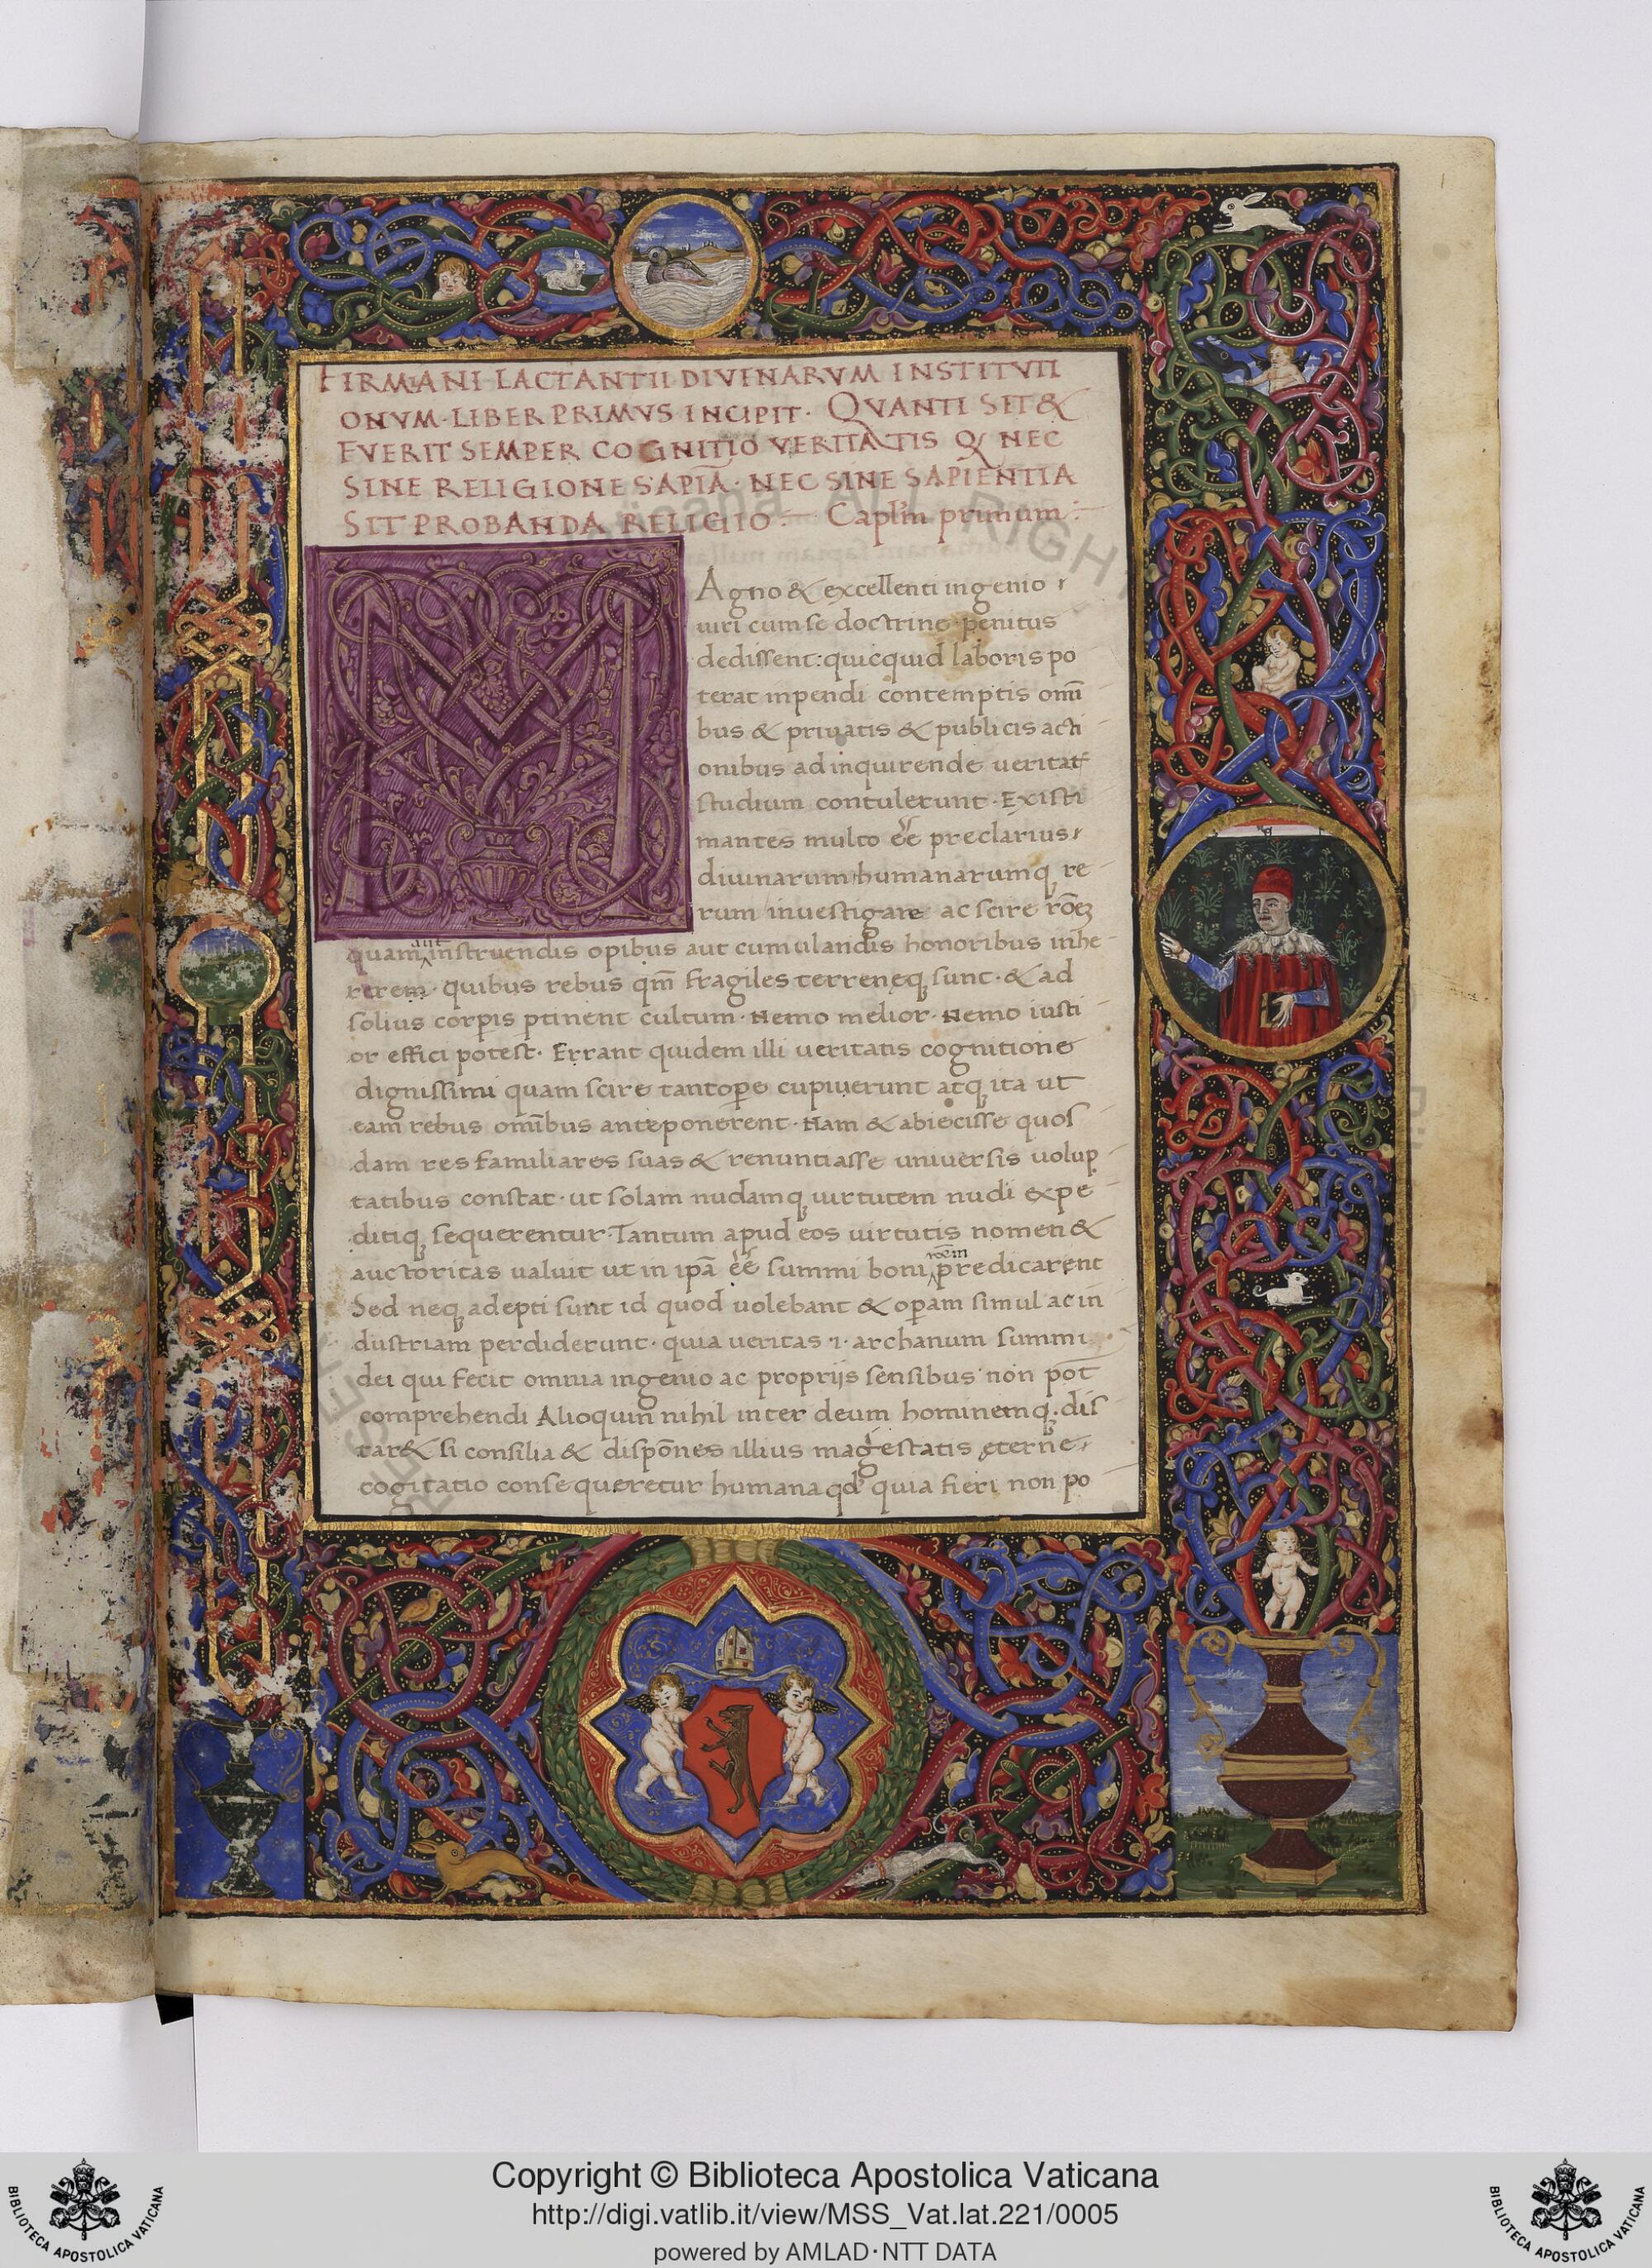 FIRMIANI LACTANTII DIVINARVM INSTITVTI
ONVM · LIBER PRIMVS INCIPIT · QVANTI SIT &
FVERIT SEMPER COGNITIO VERITATIS Q NEC
SINE RELIGIONE SAPIĀ · NEC SINE SAPIENTIA
SIT PROBANDA RELIGIO :— Caplm̄ primum :
M
Agno & excellenti ingenio
uiri cum se doctrine penitus
dedissent: quicquid laboris po
terat inpendi contemptis omī
bus & priuatis & publicis acti
onibus ad inquirende ueritat
studium contulerunt · Existi
mantes multo eē preclarius
diuinarum humanarumq re
rum inuestigare ac scire rōeȝ
aut
quam instruendis opibus aut cumulandis honoribus inhe
rerem · quibus rebus qm̄ fragiles terreneq sunt · & ad
solius corpis ptinent cultum · Nemo melior · Nemo iusti
or effici potest · Errant quidem illi ueritatis cognitione
dignissimi quam scire tantope cupiuerunt atq ita ut
eam rebus omībus anteponerent · Nam & abiecisse quos
dam res familiares suas & renuntiasse uniuersis uolup
tatibus constat · ut solam nudamq uirtutem nudi expe
ditiq sequerentur · Tantum apud eos uirtutis nomen &
roēm
auctoritas ualuit ut in ipā eē summi boni predicarent
Sed neq adepti sunt id quod uolebant & opam simul ac in
dustriam perdiderunt · quia ueritas ·i· archanum summi
dei qui fecit omnia ingenio ac proprijs sensibus non pōt
comprehendi Alioquin nihil inter deum hominemq · dis
tar& si consilia & dispōnes illius magestatis eterne
cogitatio consequeretur humana qd quia fieri non po
Copyright © Biblioteca Apostolica Vaticana
http://digi.vatlib.it/view/MSS_Vat.lat.221/0005
powered by AMLAD·NTT DATA
BIBLIOTECA APOSTOLICA VATICANA
BIBLIOTECA APOSTOLICA VATICANA